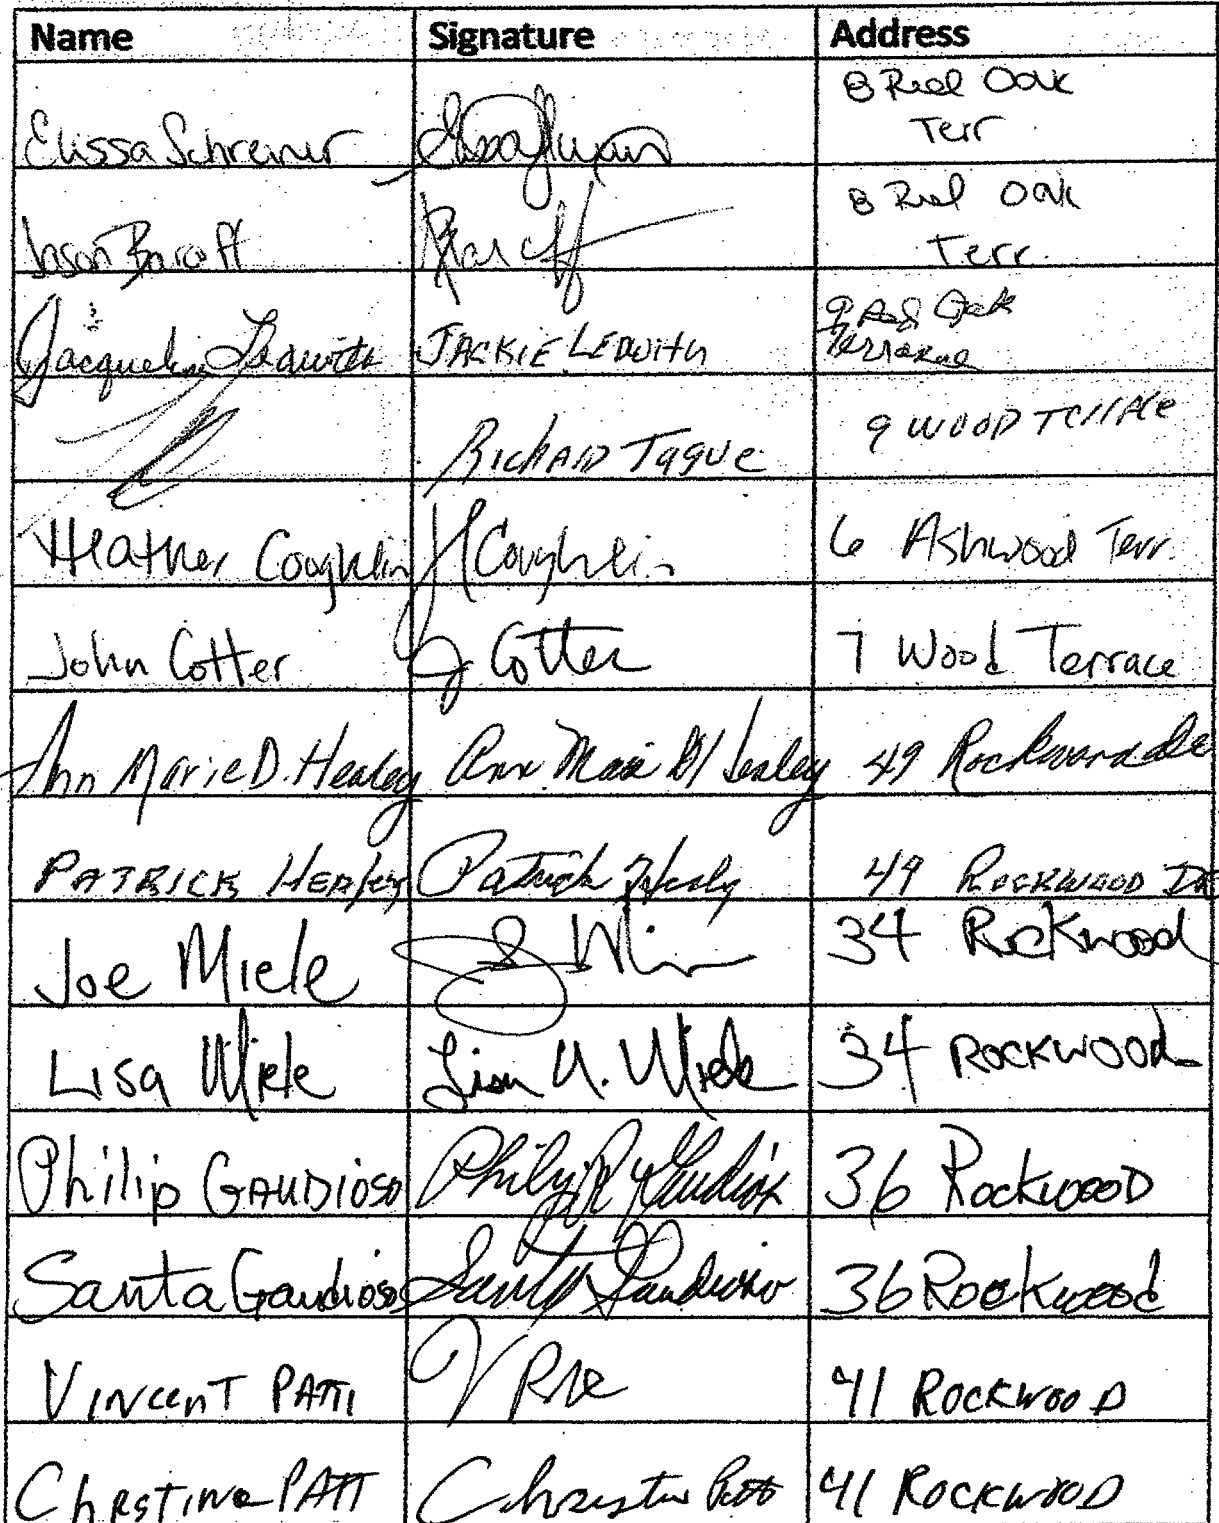 Name Signature Address
Elissa Schreiner 8 Red Oak
Terr
Jason Baroff Baroff 8 Red Oak
Terr.
Jacqueline Ledwith JACKIE LEDWITH 9 Red Oak
Terrace
RICHARD TAGUE 9 WOOD Terrace
Heather Coughlin H Coughlin 6 Ashwood Terr.
John Cotter J Cotter 7 Wood Terrace
Ann Marie D. Healey Ann Marie D Healey 49 Rockwood Dr
PATRICK HEALEY Patrick Healy 49 ROCKWOOD DR
Joe Miele 34 Rockwood
Lisa Miele Lisa A. Miele 34 ROCKWOOD
Philip GAUDIOSO Philip Gaudioso 36 ROCKWOOD
Santa Gaudioso Santa Gaudioso 36 Rockwood
VINCENT PATTI 41 ROCKWOOD
CHRSTINE PATTI Christine Patti 41 ROCKWOOD